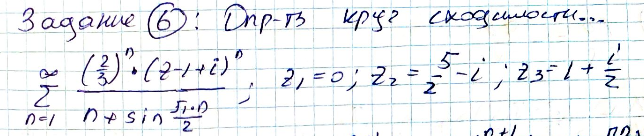 Задание 6: Опр-ть круг сходимости...
∞ Σ n=1 (2/3)^n · (z-1+i)^n / n + sin (π·n/2) ; z₁=0; z₂ = 5/2 - i; z₃ = 1 + i/2